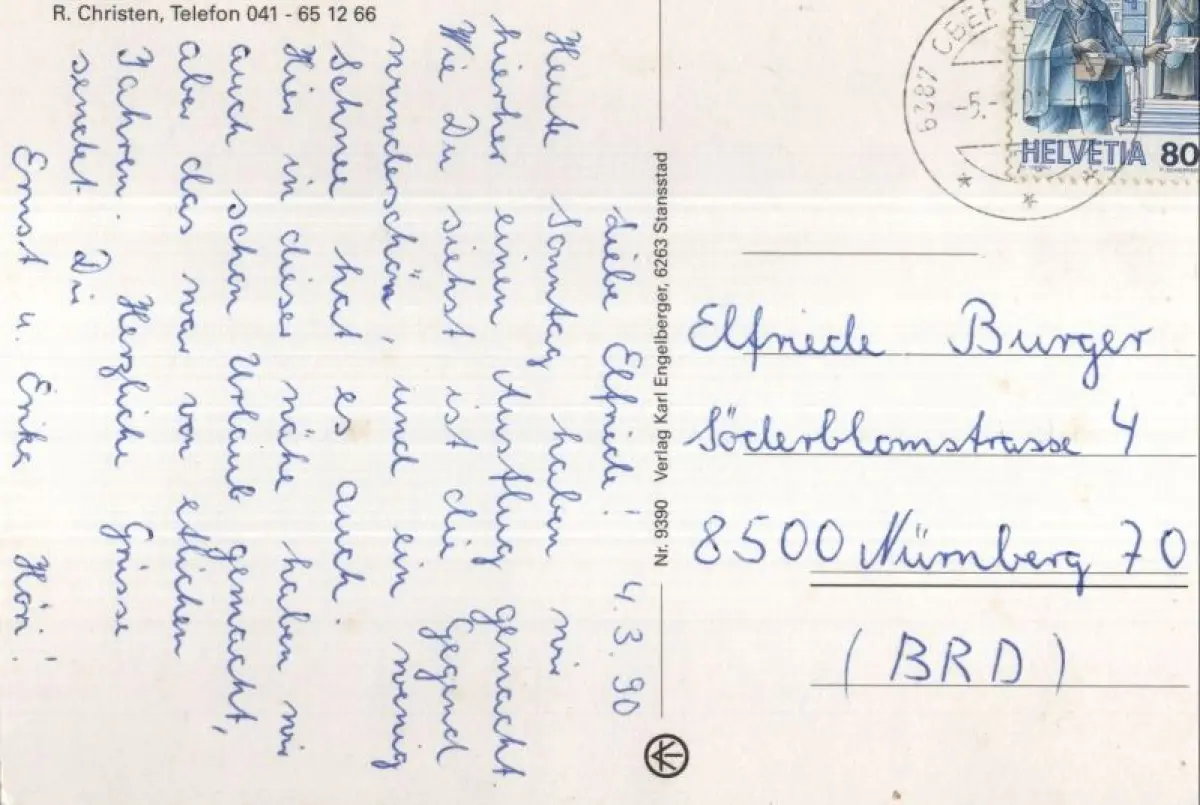 R. Christen, Telefon 041 - 65 12 66
Liebe Elfriede! 4.3.90
Heute Sonntag haben wir
hierher einen Ausflug gemacht.
Wie Du siehst ist die Gegend
wunderschön, und ein wenig
Schnee hat es auch.
Hier in dieser nähe haben wir
auch schon Urlaub gemacht,
aber das war vor etlichen
Jahren. Herzliche Grüsse
sendet Dir
Ernst u. Erika Höri
Nr. 9390 Verlag Karl Engelberger, 6263 Stansstad
6387
-5.-
HELVETIA 80
Elfriede Burger
Söderblomstrasse 4
8500 Nürnberg 70
(BRD)